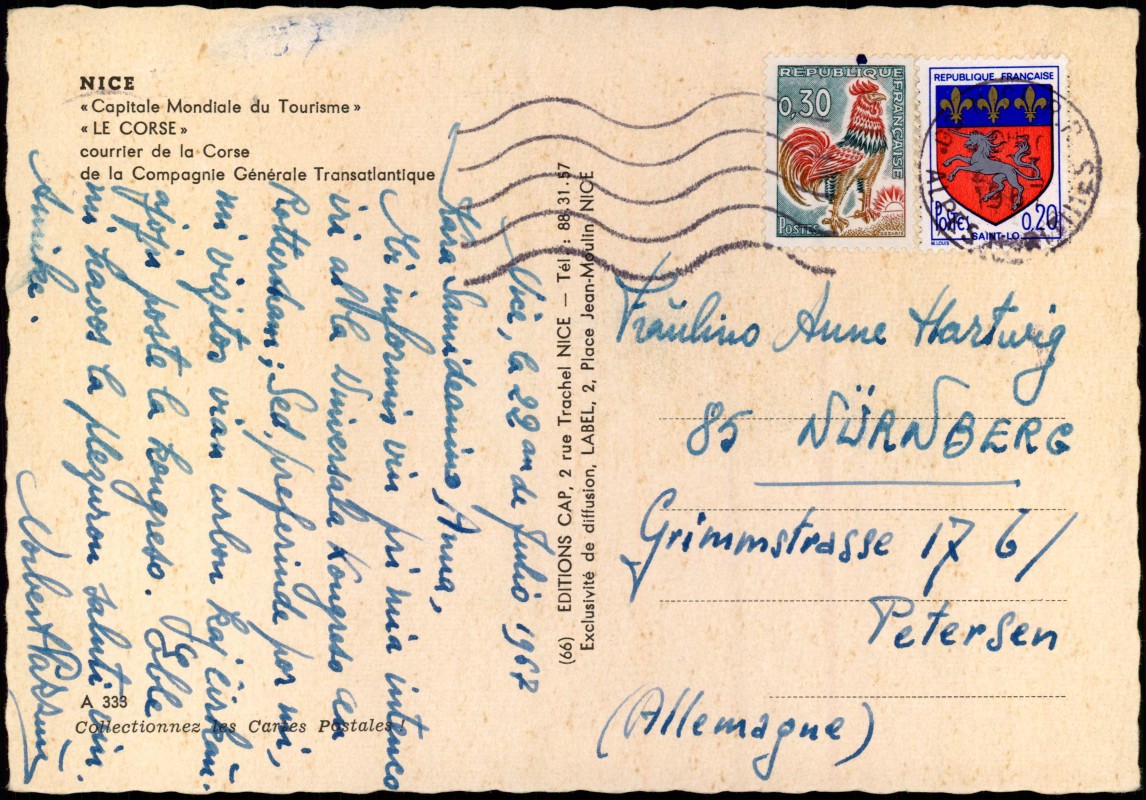 NICE
«Capitale Mondiale du Tourisme»
«LE CORSE»
courrier de la Corse
de la Compagnie Générale Transatlantique
REPUBLIQUE FRANÇAISE
0,30
POSTES
REPUBLIQUE FRANÇAISE
Postes 0,20
SAINT-LO
Nice, la 22an de Julio 1967
Kara Samideanino Anna,
Mi informis vin pri mia intenco
iri al la Universala Kongreso en
Rotterdam; Sed, preferinde por mi,
mi vizitos vian urbon kaj ĉirkaŭ-
ajojn poste la kongreso. Eble
mi havos la plezuron saluti vin.
Amike.
Norbert
(66) EDITIONS CAP, 2 rue Trachel NICE — Tél : 88.31.57
Exclusivité de diffusion, LABEL, 2, Place Jean-Moulin NICE
Fräulino Anne Hartwig
85 NÜRNBERG
Grimmstrasse 17 6/
Petersen
(Allemagne)
A 333
Collectionnez les Cartes Postales !